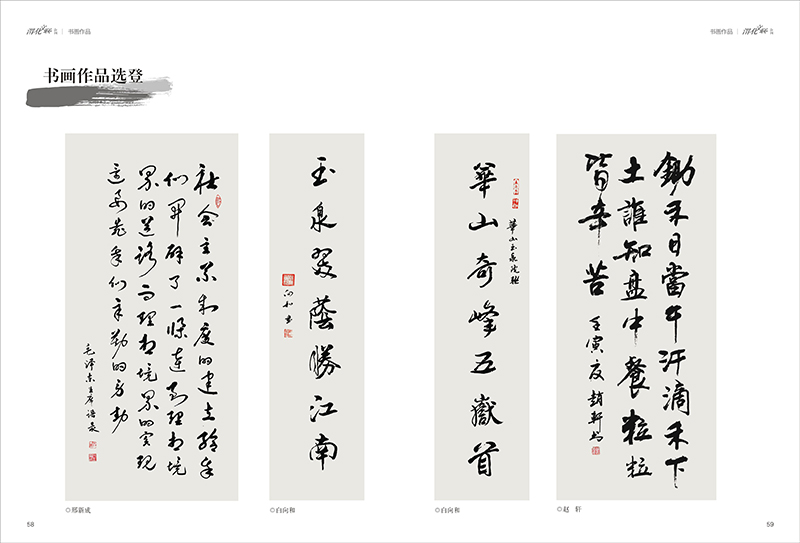 书画作品
书画作品
书画作品选登
社会主义制度的建立给我
们開辟了一條達到理想境
界的道路而理想境界的实现
還要靠我们辛勤的劳動
毛泽东主席语录
玉泉翠蔭勝江南
向和书
華山奇峰五嶽首
華山玉泉院聯
鋤禾日當午汗滴禾下
土誰知盘中餐粒粒
皆辛苦
壬寅夏趙軒书
◎邢新成
◎白向和
◎白向和
◎赵 轩
58
59